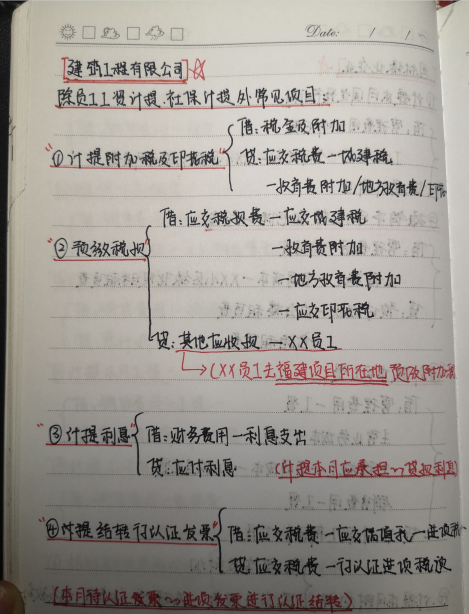 Date: / /
[建筑工程有限公司]☆
除员工工资计提、社保计提外常见项目
借:税金及附加
"①计提附加税及印花税"
贷:应交税费—城建税
—教育费附加/地方教育费/印花
借:应交税费—应交城建税
"②预缴税款"
—教育费附加
—地方教育费附加
—应交印花税
贷:其他应收款—XX员工
(XX员工去福建项目所在地预缴附加税
"③计提利息"
借:财务费用—利息支出
贷:应付利息
(计提本月应承担~贷款利息)
"④计提结转待认证发票"
借:应交税费—应交增值税—进项税
贷:应交税费—待认证进项税额
(本月待认证发票~进项发票进行认证结转)